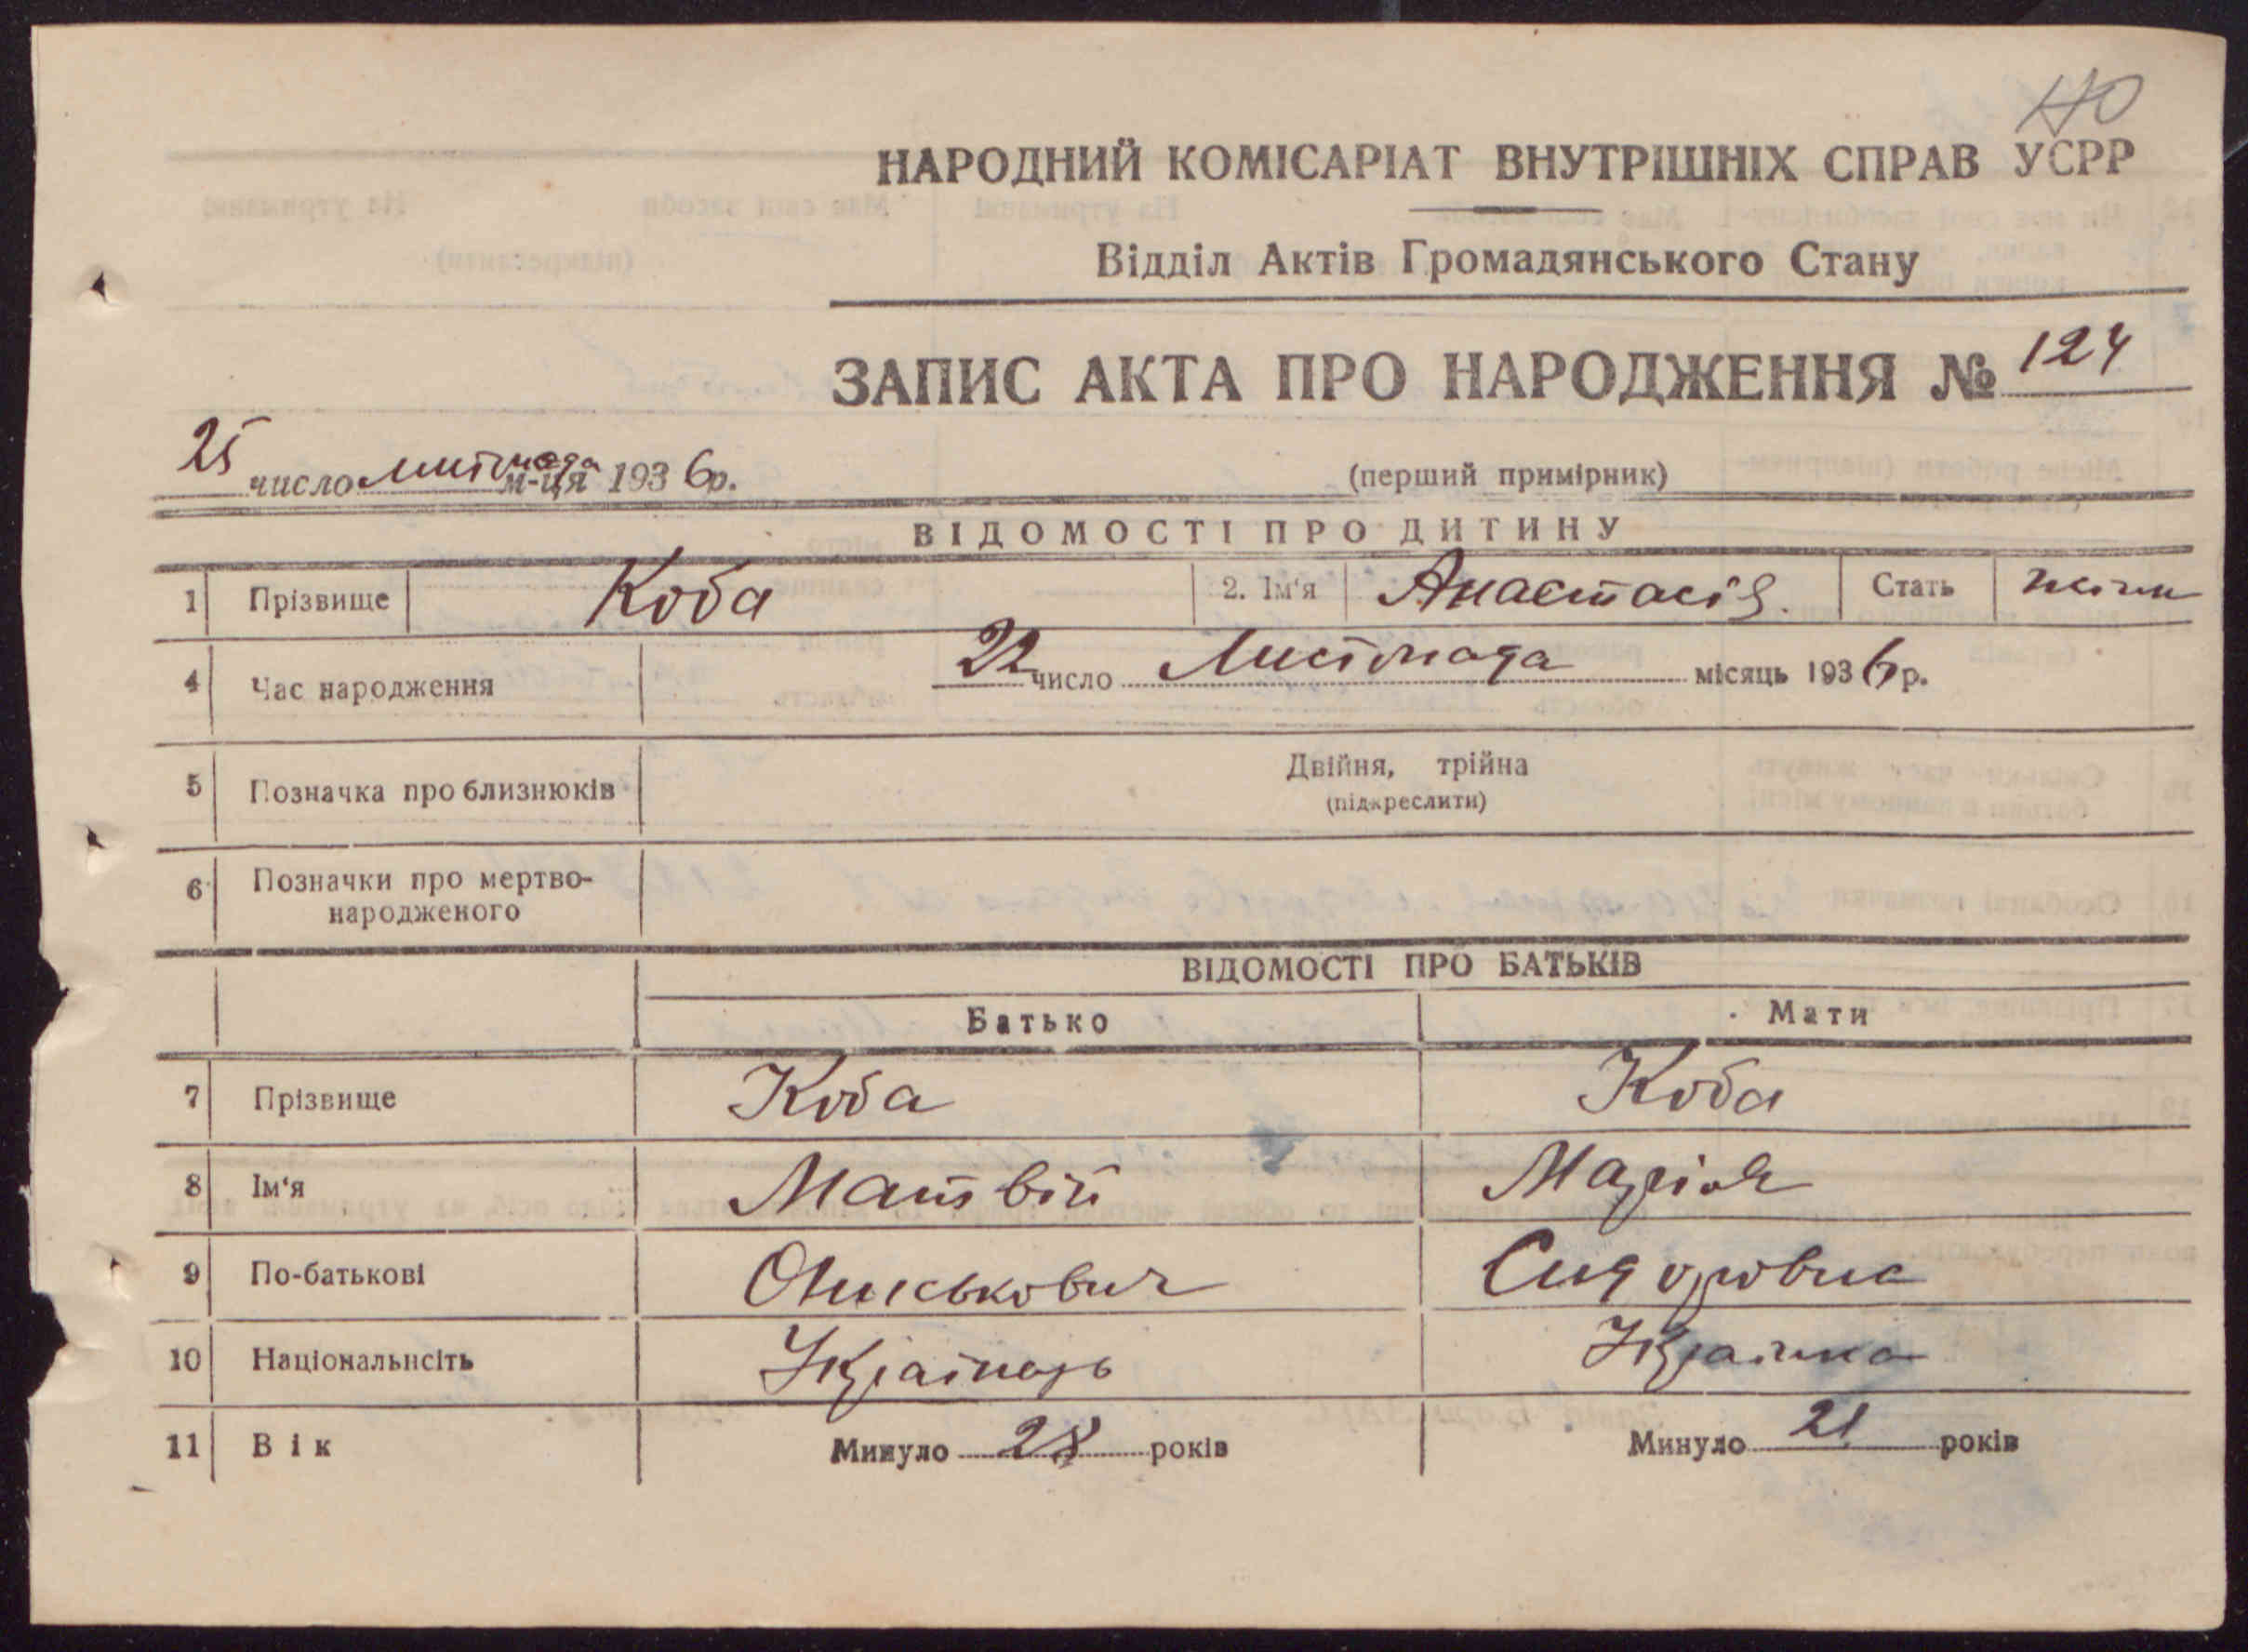 НАРОДНИЙ КОМІСАРІАТ ВНУТРІШНІХ СПРАВ УСРР
Відділ Актів Громадянського Стану
ЗАПИС АКТА ПРО НАРОДЖЕННЯ № 124
25 число листопада м-ця 1936 р.
(перший примірник)
ВІДОМОСТІ ПРО ДИТИНУ
1 Прізвище Коба 2. Ім'я Анастасія. Стать жіноч
4 Час народження 22 число Листопада місяць 1936 р.
5 Позначка про близнюків Двійня, трійна
(підкреслити)
6 Позначки про мертво-
народженого
ВІДОМОСТІ ПРО БАТЬКІВ
Батько Мати
7 Прізвище Коба Коба
8 Ім'я Матвій Марія
9 По-батьковіОниськович Сидоровна
10 Національнсіть Українець Українка
11 Вік Минуло 28 років Минуло 21 років